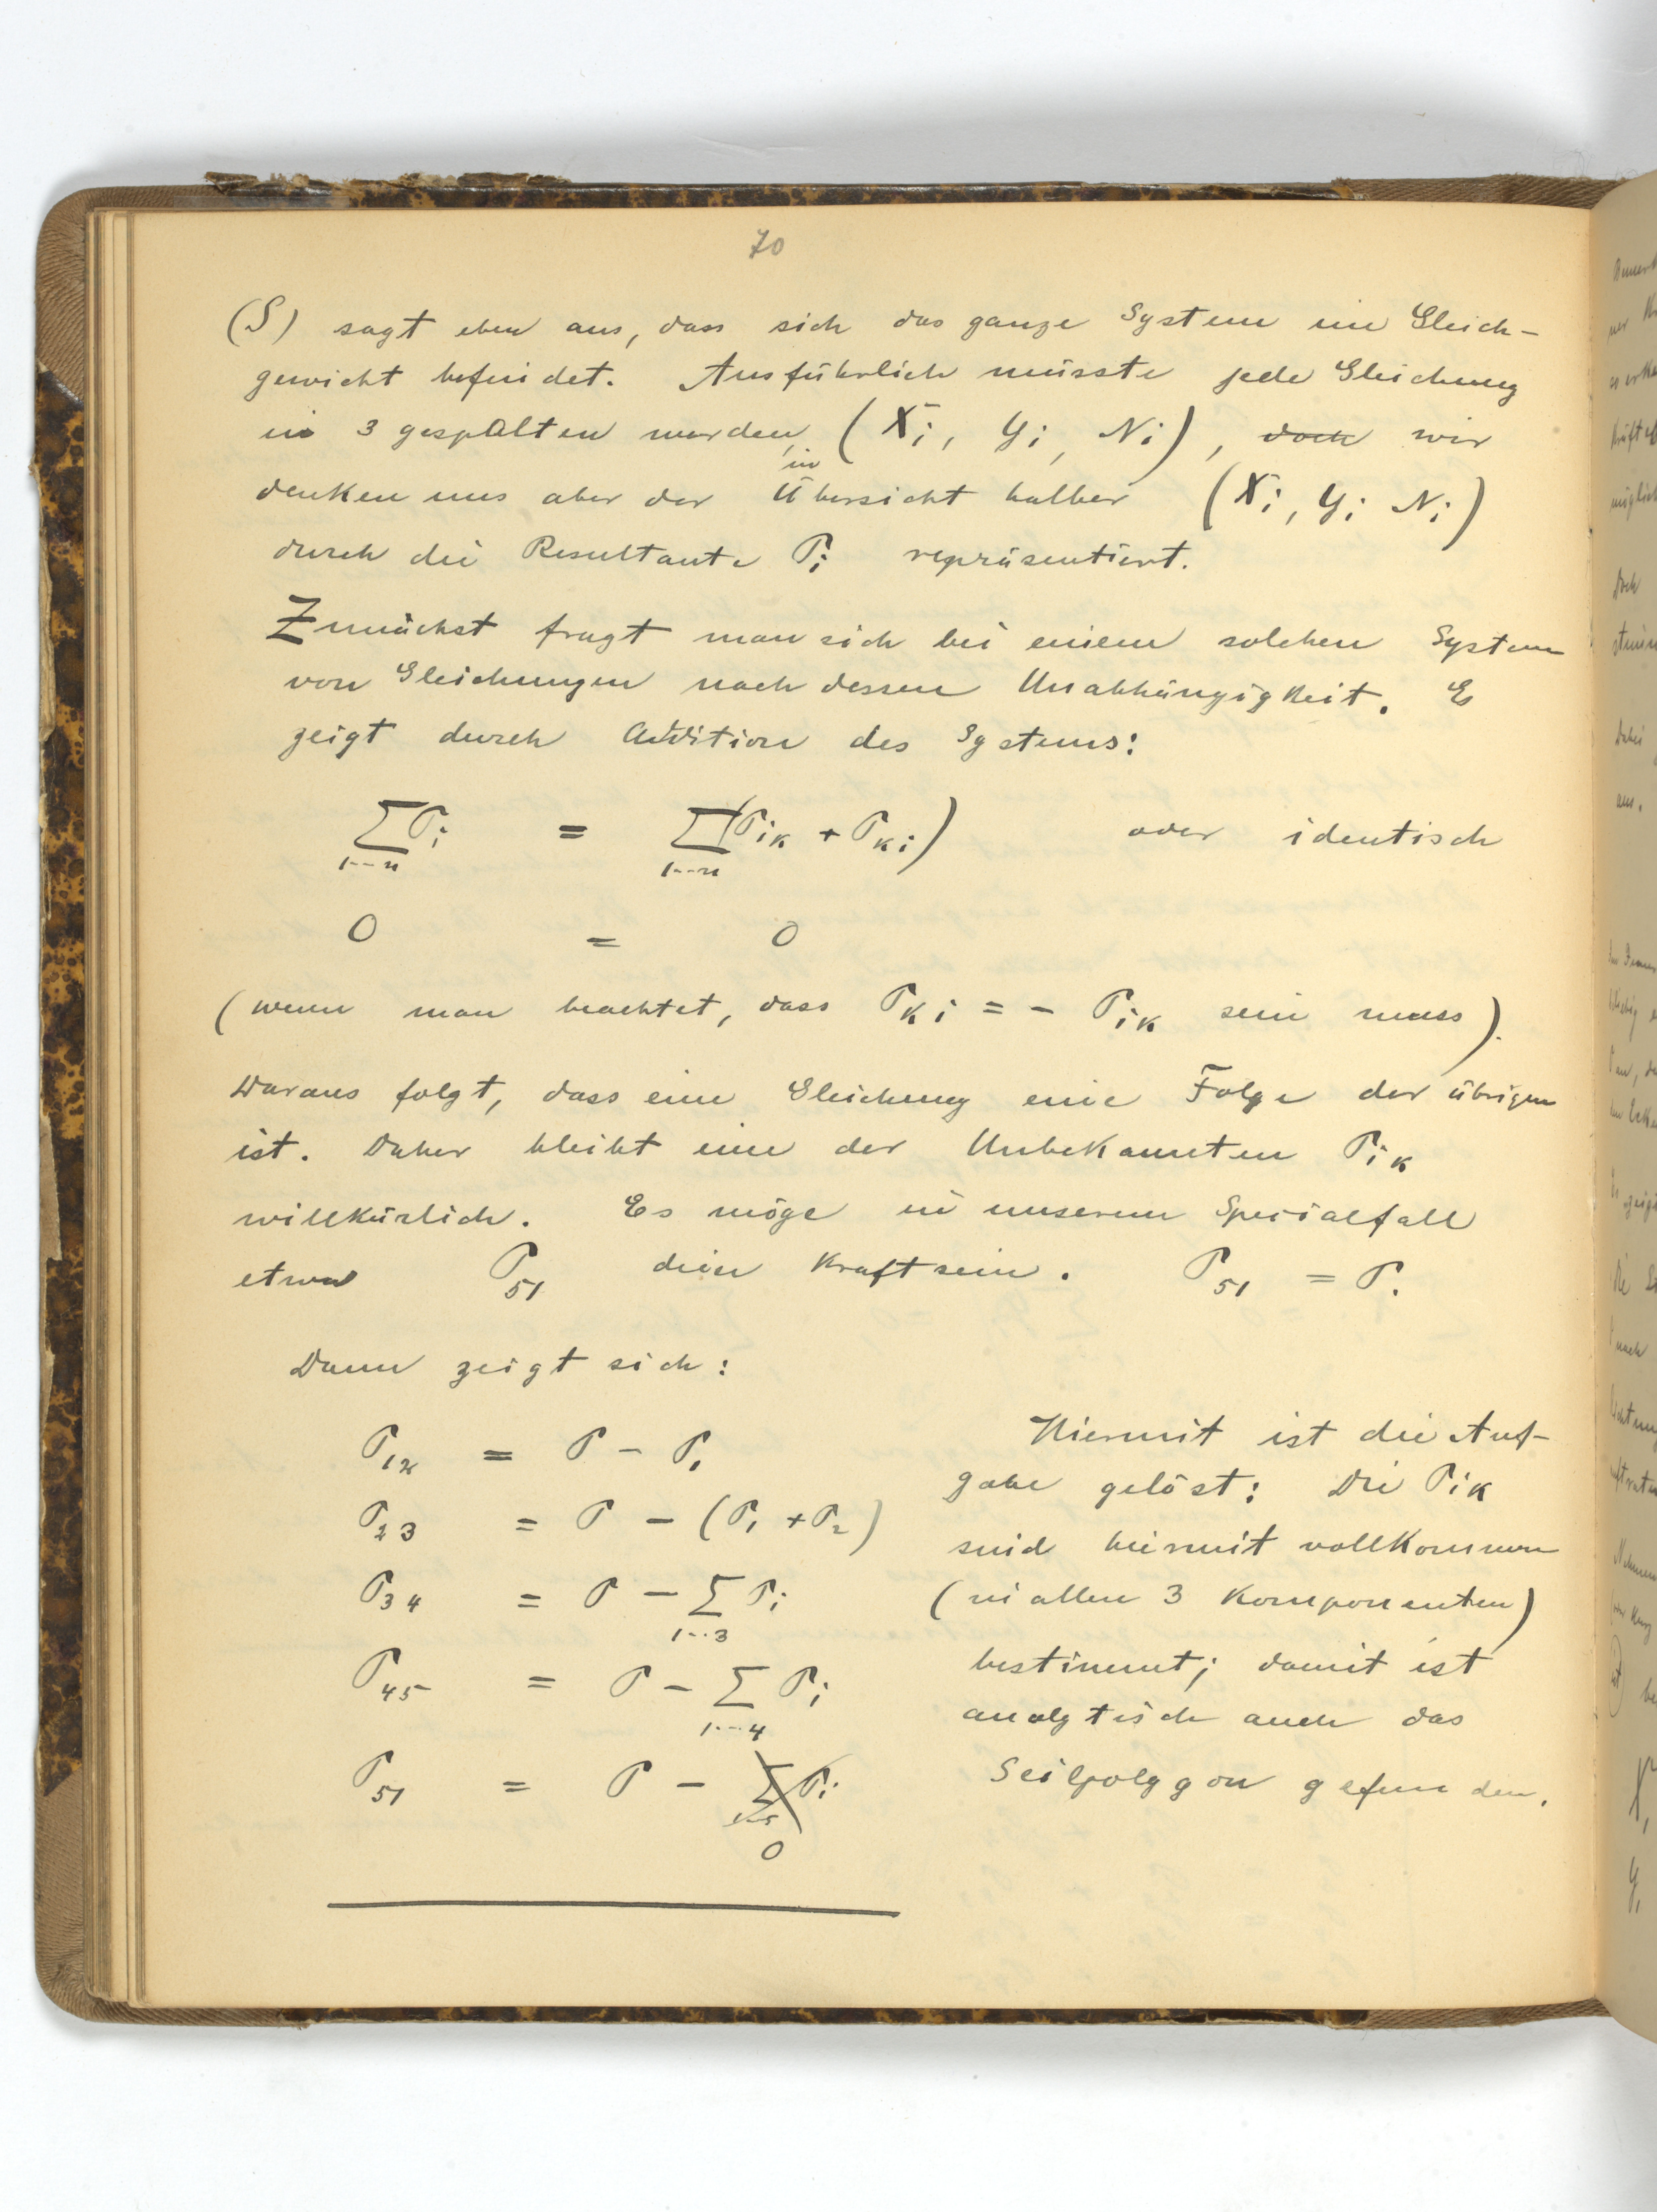 70
(S) sagt eben aus, dass sich das ganze System im Gleich-
gewicht befindet. Ausführlich müsste jede Gleichung
in 3 gespalten werden, (Xi, Yi, Ni), doch wir
in
denken uns aber der Übersicht halber (Xi, Yi Ni)
durch die Resultante Pi repräsentiert.
Zunächst fragt man sich bei einem solchen System
von Gleichungen nach dessen Unabhängigkeit. Es
zeigt durch Addition des Systems:
∑Pi = ∑(Pik + Pki) oder identisch
1--n 1--n
0 = 0
(wenn man beachtet, dass Pki = - Pik sein muss).
Daraus folgt, dass eine Gleichung eine Folge der übrigen
ist. Daher bleibt eine der Unbekannten Pik
willkürlich. Es möge in unserem Spezialfall
etwa P51 Kraft sein. P51 = P.
Dann zeigt sich:
P12 = P - P1
P23 = P - (P1 + P2)
P34 = P - ∑ Pi
1--3
P45 = P - ∑ Pi
1---4
P51 = P - ∑ Pi
1--5
0
Hiermit ist die Auf-
gabe gelöst: Die Pik
sind hiermit vollkommen
(in allen 3 Komponenten)
bestimmt; damit ist
analytisch auch das
Seilpolygon gefunden.